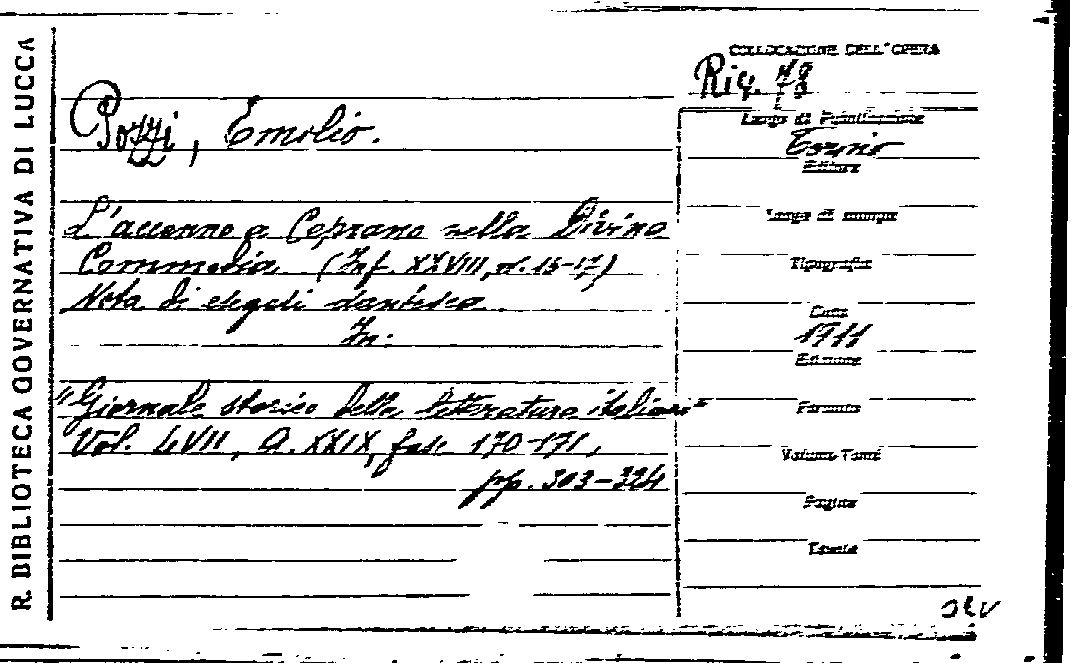 R. BIBLIOTECA GOVERNATIVA DI LUCCA
COLLOCAZIONE DELL'OPERA
Riv. 78
Pozzi, Emilio.
Luogo di Pubblicazione
Torino
Editore
L'accenno a Ceprano nella Divina
Luogo di stampa
Commedia (Inf. XXVIII, v. 15-17)
Tipografia
Nota di esegesi dantesca
Data
In:
1911
Edizione
"Giornale storico della letteratura italiana"
Formato
Vol. LVII, A. XXIX, fasc. 170-171,
Volume Tomi
pp. 303-324
Pagine